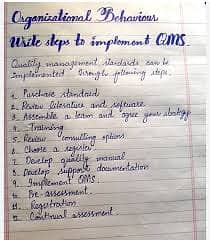 Organizational Behaviour
Write steps to implement QMS.
Quality management standards can be
implemented through following steps.
1. Purchase standard
2. Review literature and software
3. Assemble a team and agree your strategy
4. Training
5. Review consulting options
6. Choose a register
7. Develop quality manual
8. Develop support documentation
9. Implement QMS
10. Pre-assessment
11. Registration
12. Continual assessment